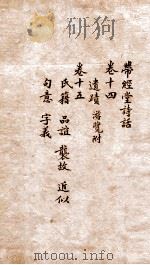 帶經堂詩話
卷十四
遺蹟 游覽附
卷十五
氏籍 品誼 襲故 近似
句意 字義